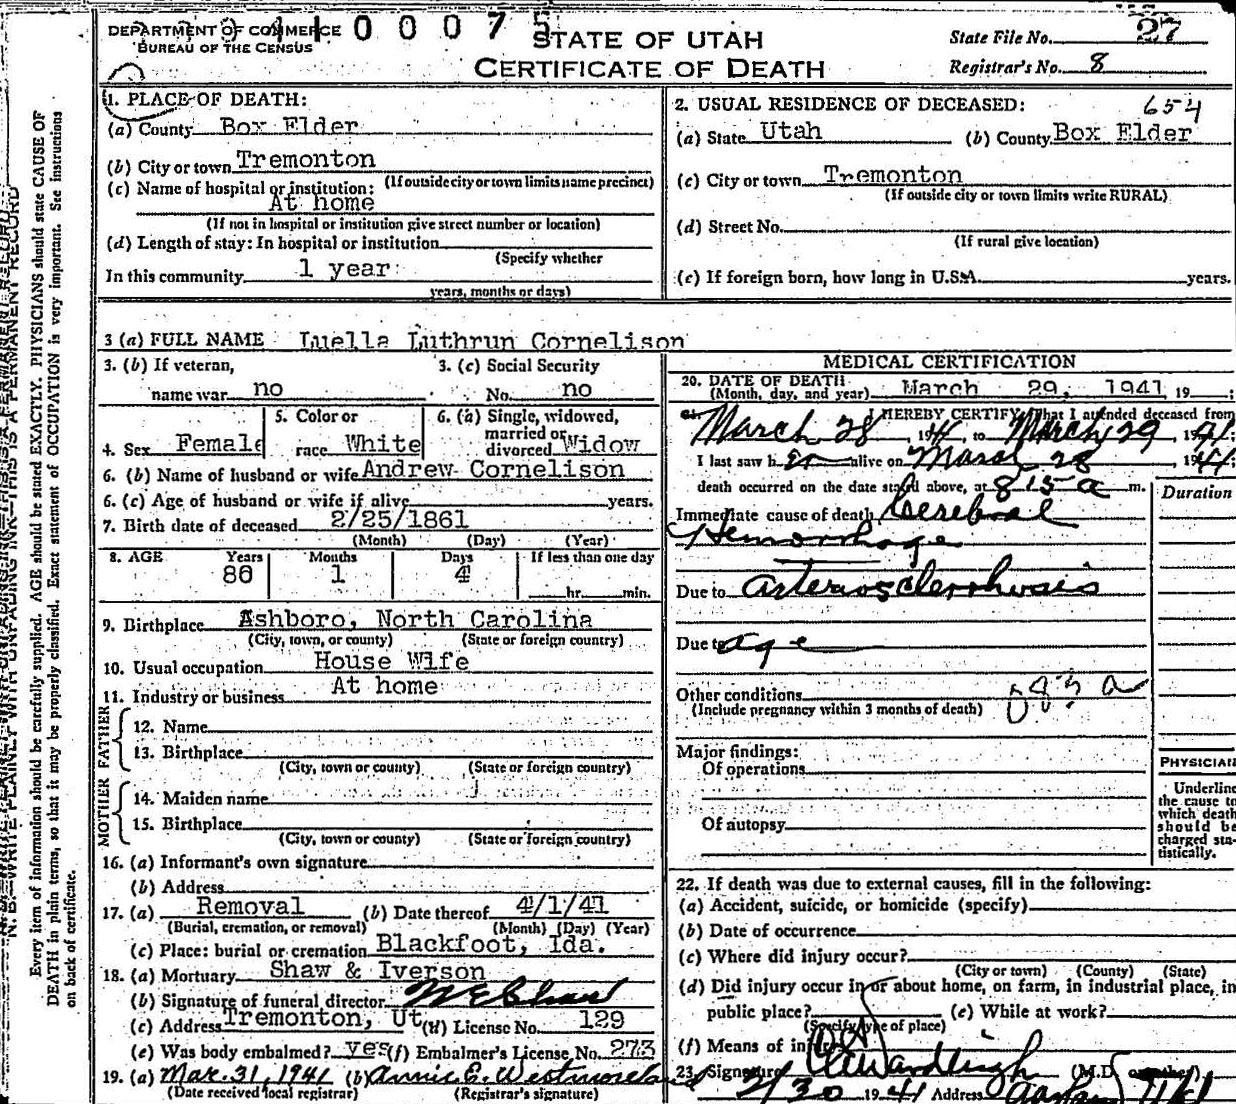 DEPARTMENT OF COMMERCE
BUREAU OF THE CENSUS
00075
STATE OF UTAH
CERTIFICATE OF DEATH
State File No. 27
Registrar's No. 8
1. PLACE OF DEATH:
(a) County Box Elder
(b) City or town Tremonton
(If outside city or town limits name precinct)
(c) Name of hospital or institution:
At home
(If not in hospital or institution give street number or location)
(d) Length of stay: In hospital or institution
(Specify whether
In this community 1 year
years, months or days)
2. USUAL RESIDENCE OF DECEASED: 654
(a) State Utah (b) County Box Elder
(c) City or town Tremonton
(If outside city or town limits write RURAL)
(d) Street No.
(If rural give location)
(e) If foreign born, how long in U.S.A. years.
3 (a) FULL NAME Luella Luthrun Cornelison
3. (b) If veteran, name war no
3. (c) Social Security No. no
4. Sex Female
5. Color or race White
6. (a) Single, widowed, married or divorced Widow
6. (b) Name of husband or wife Andrew Cornelison
6. (c) Age of husband or wife if alive years.
7. Birth date of deceased 2/25/1861
(Month) (Day) (Year)
8. AGE Years Months Days If less than one day
80 1 4 hr. min.
9. Birthplace Ashboro, North Carolina
(City, town, or county) (State or foreign country)
10. Usual occupation House Wife
11. Industry or business At home
FATHER
12. Name
13. Birthplace
(City, town or county) (State or foreign country)
MOTHER
14. Maiden name
15. Birthplace
(City, town or county) (State or foreign country)
16. (a) Informant's own signature
(b) Address
17. (a) Removal (b) Date thereof 4/1/41
(Burial, cremation, or removal) (Month) (Day) (Year)
(c) Place: burial or cremation Blackfoot, Ida.
18. (a) Mortuary Shaw & Iverson
(b) Signature of funeral director W E Shaw
(c) Address Tremonton, Ut (d) License No. 129
(e) Was body embalmed? yes (f) Embalmer's License No. 273
19. (a) Mar. 31, 1941 (b) Annie E. Westmoreland
(Date received local registrar) (Registrar's signature)
MEDICAL CERTIFICATION
20. DATE OF DEATH March 29, 1941, 19 ;
(Month, day, and year)
I HEREBY CERTIFY, that I attended deceased from
March 28 1941, to March 29 1941.
I last saw her alive on March 28, 1941;
death occurred on the date stated above, at 8 15 a m.
Duration
Immediate cause of death Cerebral
Hemorrhage
Due to arteriosclerhosis
Due to age
Other conditions
(Include pregnancy within 3 months of death)
Major findings:
Of operations
Of autopsy
PHYSICIAN
Underline
the cause to
which death
should be
charged sta-
tistically.
22. If death was due to external causes, fill in the following:
(a) Accident, suicide, or homicide (specify)
(b) Date of occurrence
(c) Where did injury occur?
(City or town) (County) (State)
(d) Did injury occur in or about home, on farm, in industrial place, in
public place? (e) While at work?
(Specify type of place)
(f) Means of injury
23. Signature (M.D. or other)
1941 Address
Every item of information should be carefully supplied. AGE should be stated EXACTLY. PHYSICIANS should state CAUSE OF
DEATH in plain terms, so that it may be properly classified. Exact statement of OCCUPATION is very important. See instructions
on back of certificate.